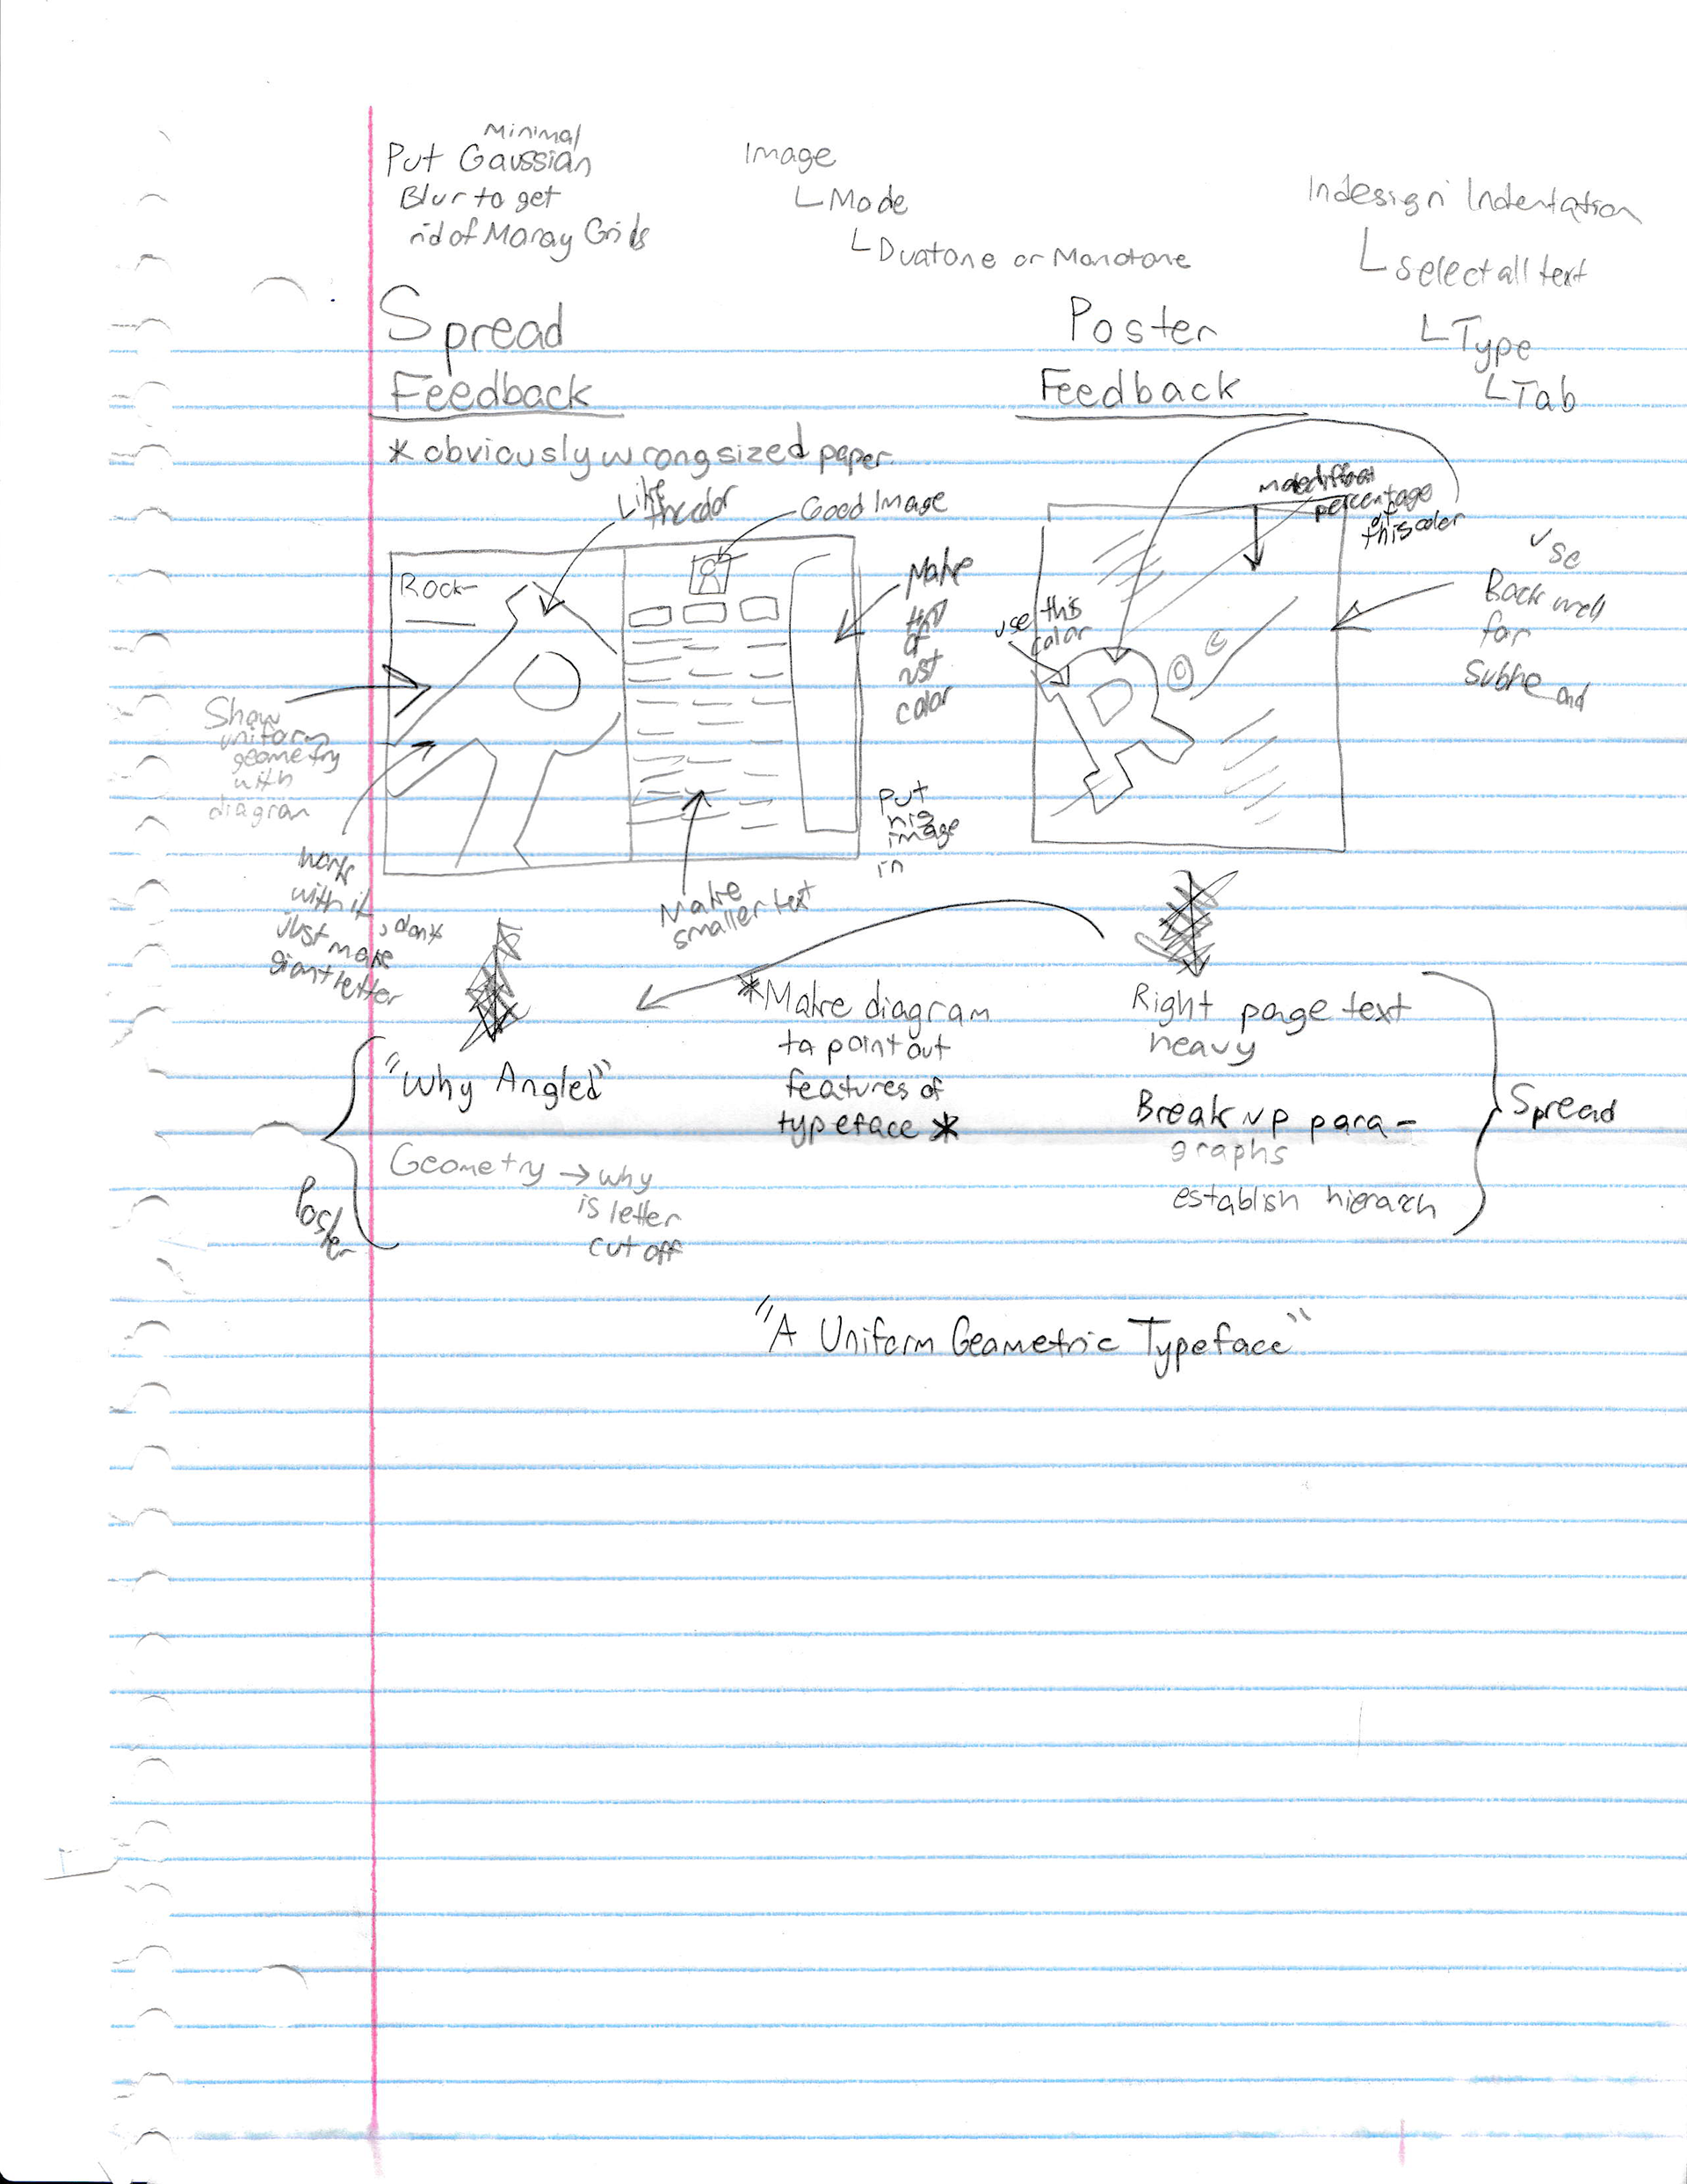 Minimal
Put Gaussian
Blur to get
rid of Maray Grids
Image
Mode
Duatone or Monotone
Indesign Indentation
select all text
Type
Tab
Spread
Feedback
* obviously wrong sized paper
Like
the color
Good Image
Rock
Make
of
rust
color
Put
his
image
in
Show
uniform
geometry
with
diagram
work
with it, don't
just make
giant letter
Make
smaller text
Poster
Feedback
Make different
percentage
of
this color
use this
color
use
Rockwell
for
Subhe
"Why Angled"
Geometry → why
is letter
cut off
Poster
*Make diagram
to point out
features of
typeface *
Right page text
heavy
Break up para-
graphs
establish hierarch
Spread
"A Uniform Geometric Typeface"